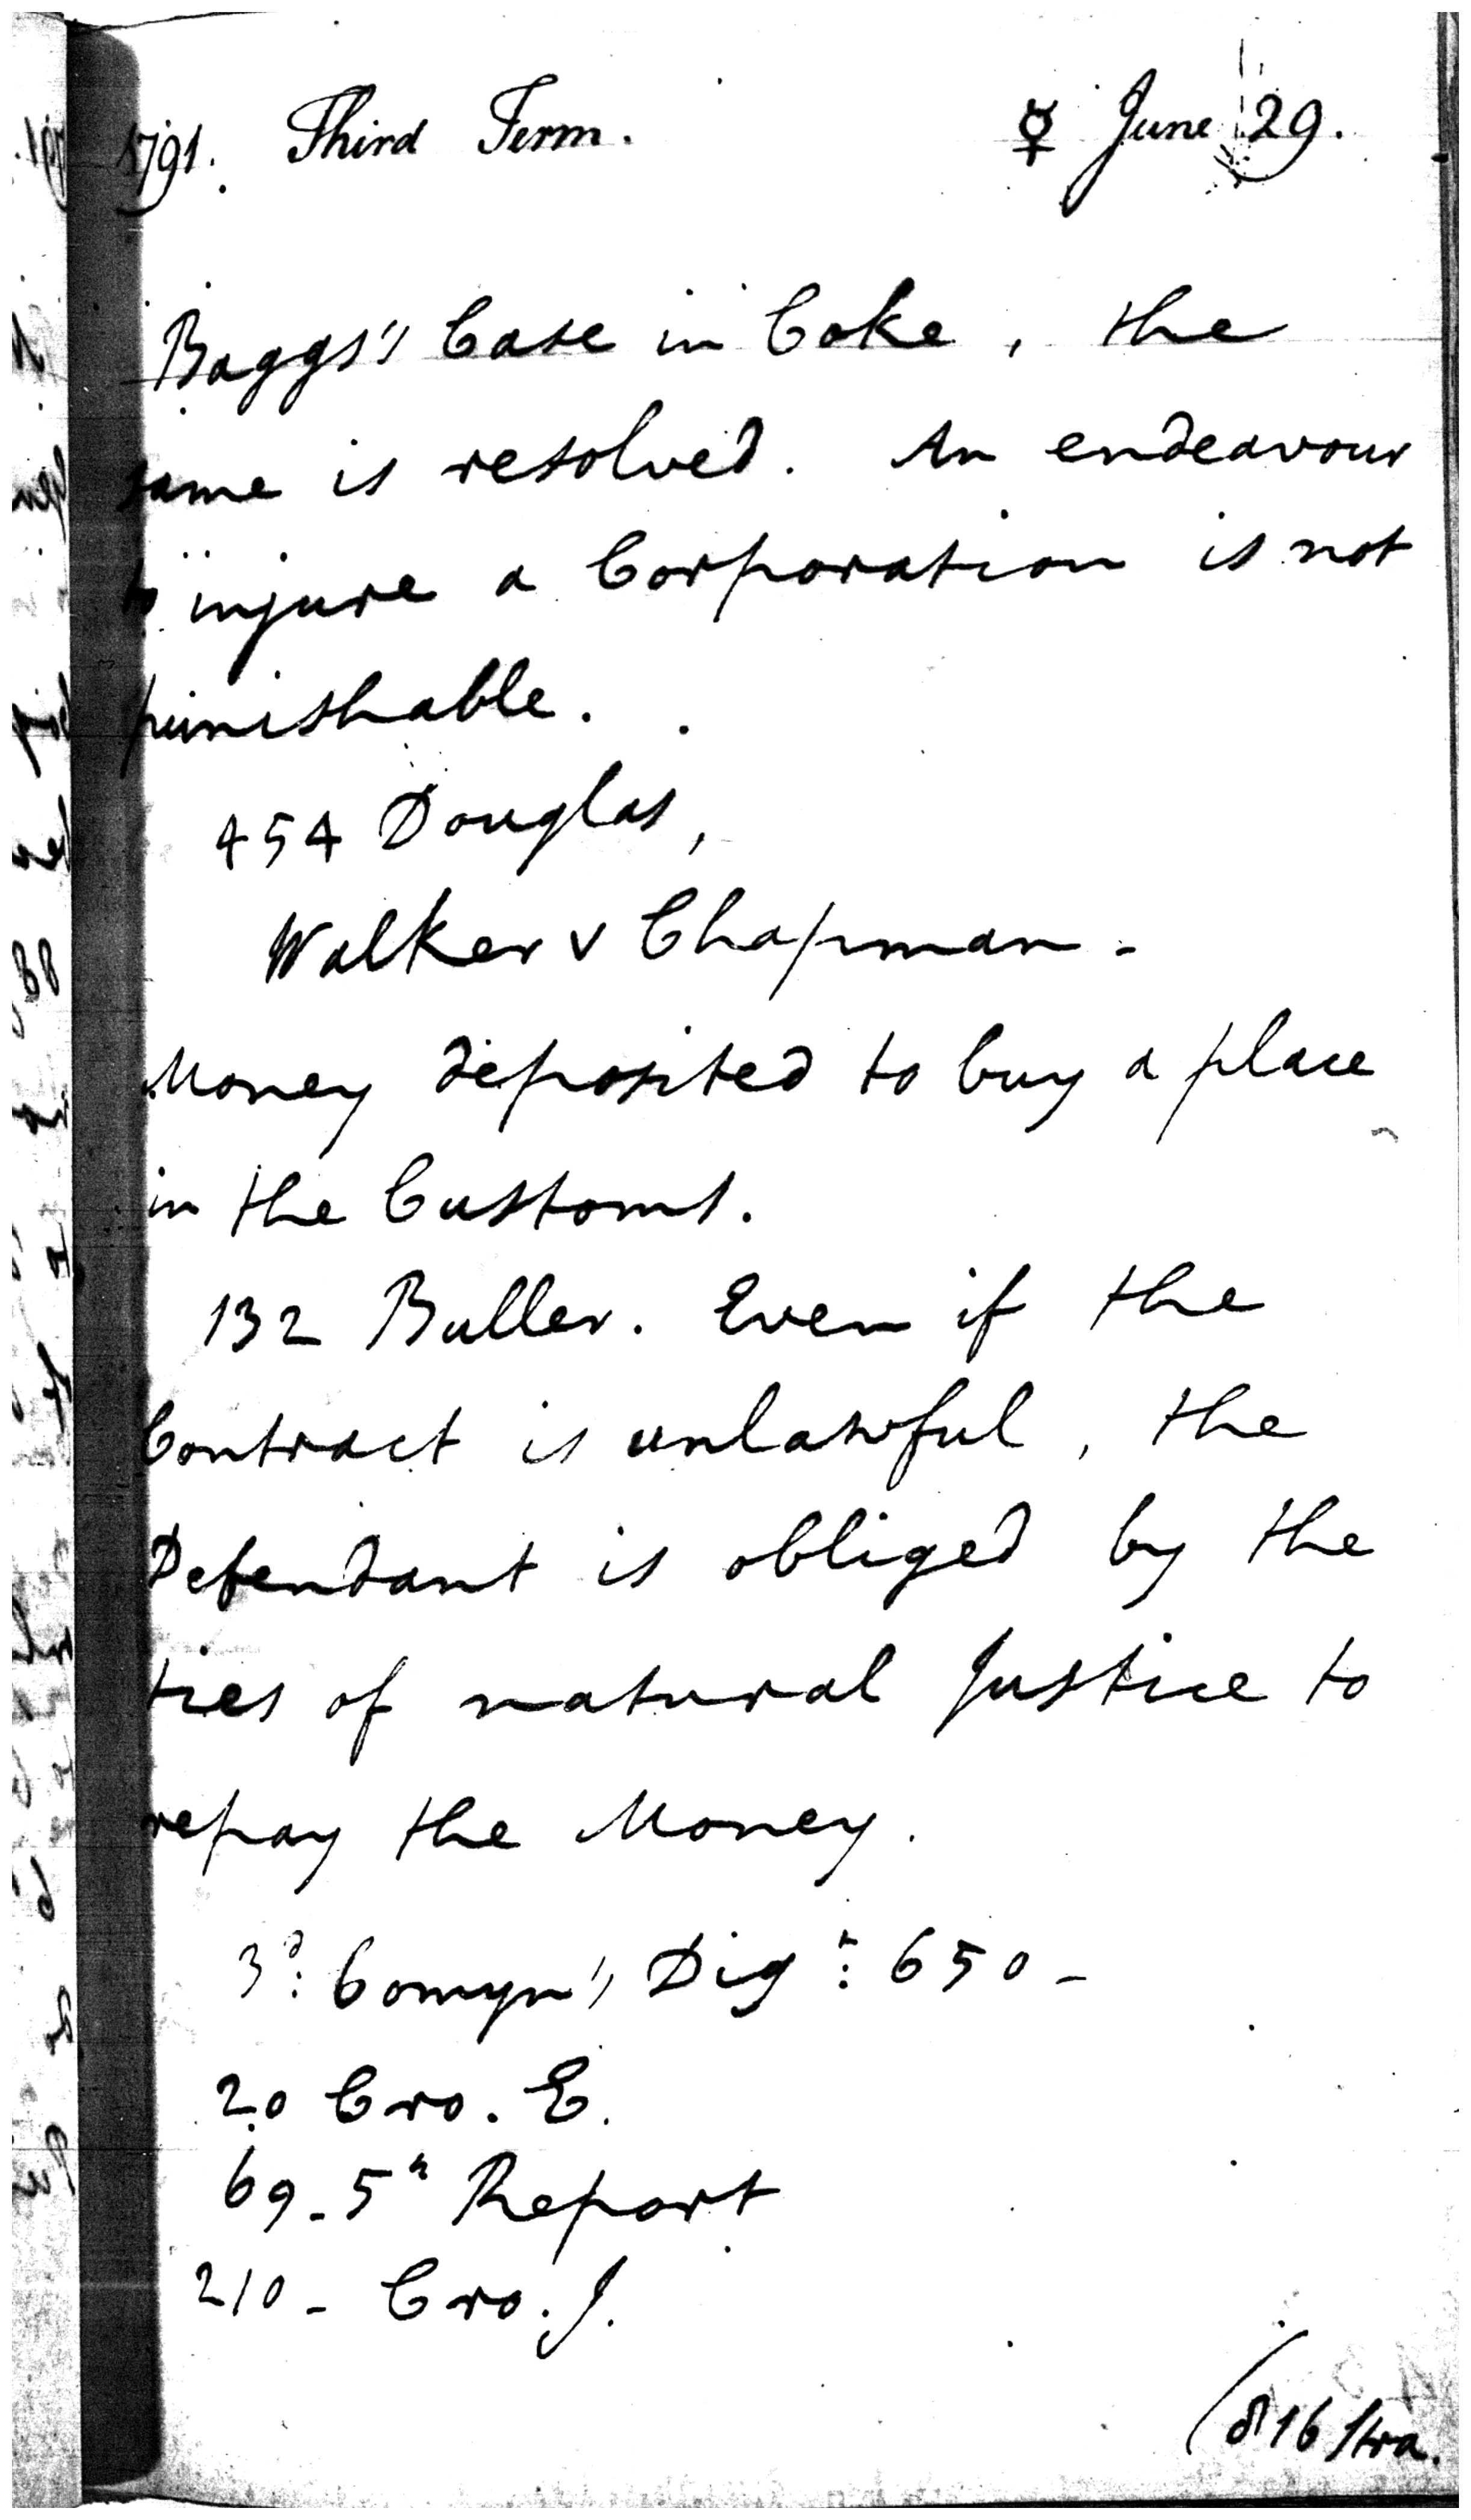 1791. Third Term. ☿ June 29.
Baggs's Case in Coke, the
same is resolved. An endeavour
to injure a Corporation is not
punishable.
454 Douglas,
Walker v Chapman -
Money deposited to buy a place
in the Customs.
132 Buller. Even if the
Contract is unlawful, the
Defendant is obliged by the
ties of natural Justice to
repay the Money.
3d: Comyn's Digt: 650 -
20 Cro. E.
69 - 5h Report
210 - Cro. J.
(816 Stra.